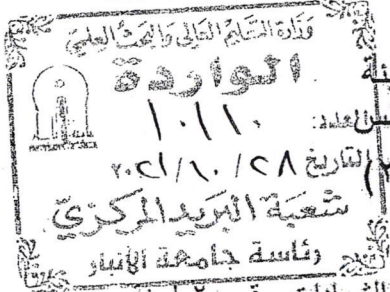 وزارة التعليم العالي والبحث العلمي
الواردة
العدد: ١٠١١٠
التاريخ ٢٠٢١/١٠/٢٨
شعبة البريد المركزي
رئاسة جامعة الانبار